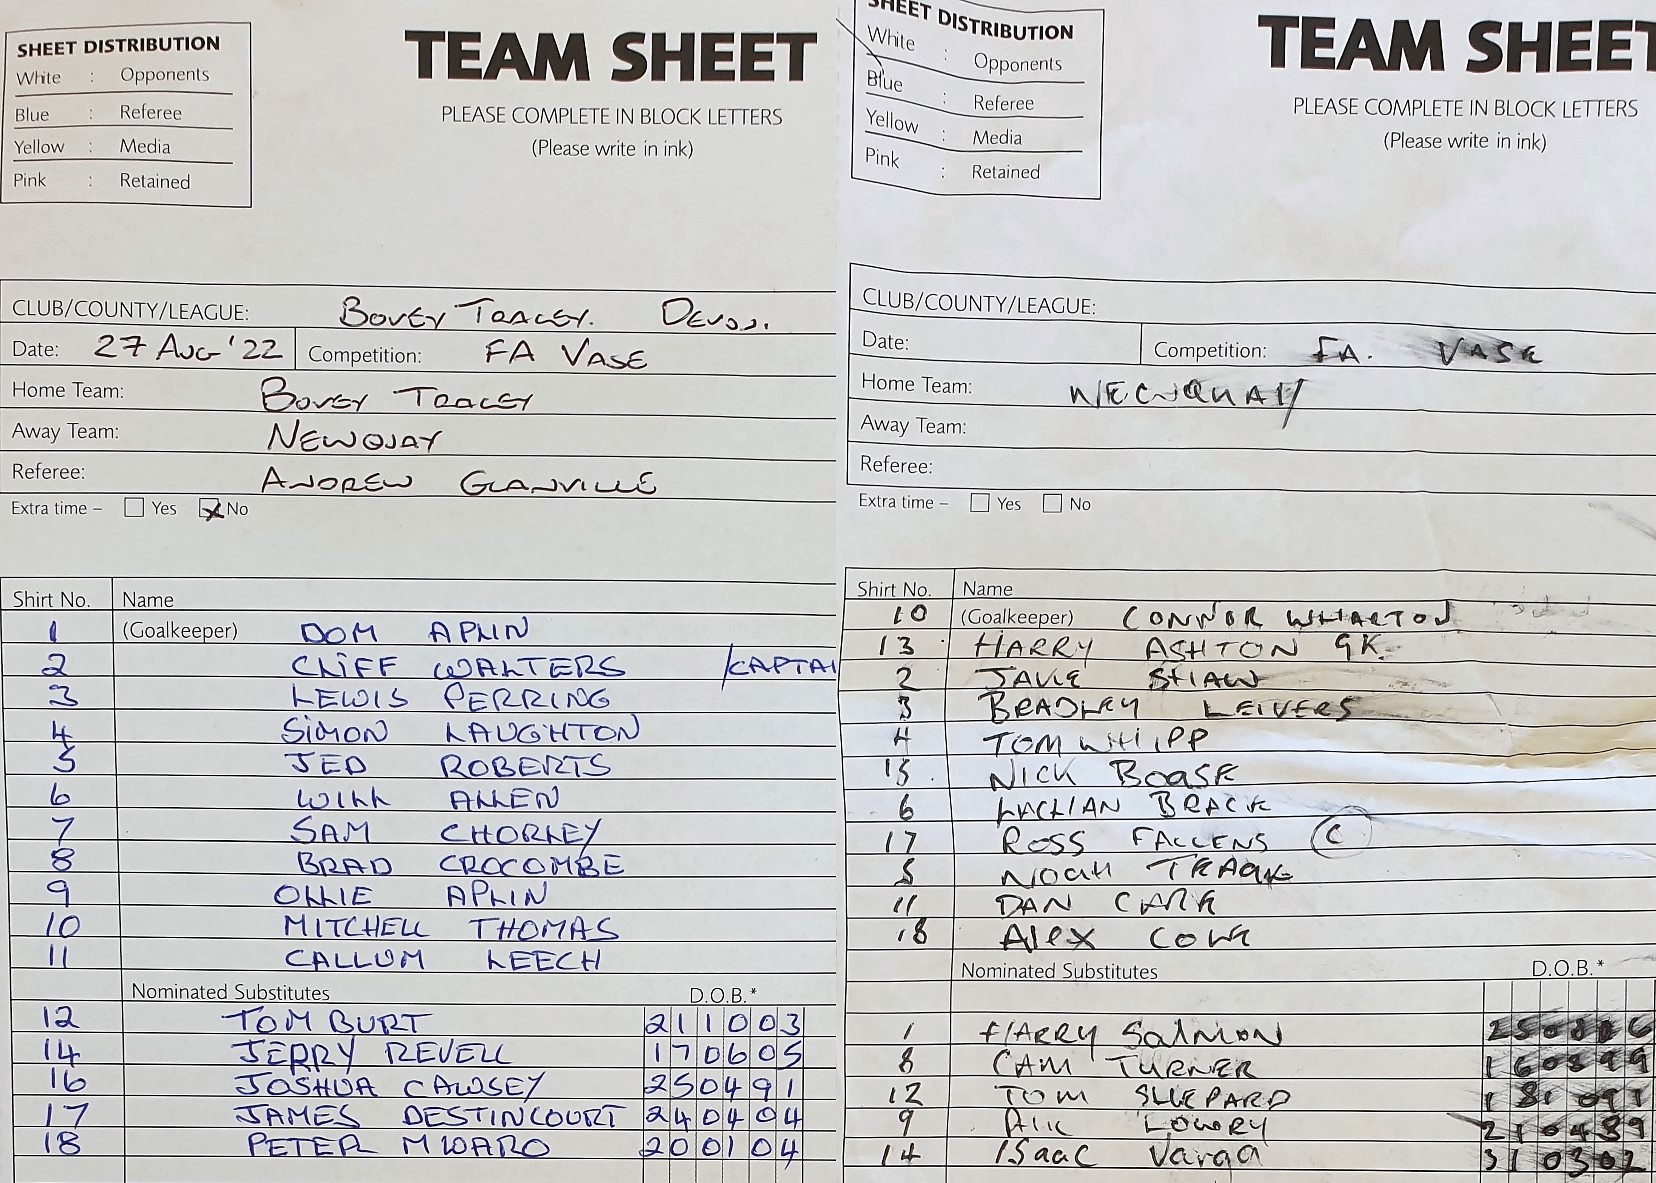 SHEET DISTRIBUTION
White : Opponents
Blue : Referee
Yellow : Media
Pink : Retained
TEAM SHEET
PLEASE COMPLETE IN BLOCK LETTERS
(Please write in ink)
CLUB/COUNTY/LEAGUE: BOVEY TRACEY. DEVON.
Date: 27 AUG '22 Competition: FA VASE
Home Team: BOVEY TRACEY
Away Team: NEWQUAY
Referee: ANDREW GLANVILLE
Extra time – Yes No
Shirt No. Name
1 (Goalkeeper) DOM APLIN
2 CLIFF WALTERS /CAPTAI
3 LEWIS PERRING
4 SIMON LAUGHTON
5 JED ROBERTS
6 WILL ALLEN
7 SAM CHORLEY
8 BRAD CROCOMBE
9 OLLIE APLIN
10 MITCHELL THOMAS
11 CALLUM LEECH
Nominated Substitutes D.O.B.*
12 TOM BURT 211003
14 JERRY REVELL 170605
16 JOSHUA CAWSEY 250491
17 JAMES DESTINCOURT 240404
18 PETER MWARO 200104
SHEET DISTRIBUTION
White : Opponents
Blue : Referee
Yellow : Media
Pink : Retained
TEAM SHEET
PLEASE COMPLETE IN BLOCK LETTERS
(Please write in ink)
CLUB/COUNTY/LEAGUE:
Date: Competition: FA. VASE
Home Team: NEWQUAY
Away Team:
Referee:
Extra time – Yes No
Shirt No. Name
10 (Goalkeeper) CONNOR WHARTON
13 HARRY ASHTON GK
2 JAKE SHAW
3 BRADLEY LEIVERS
4 TOM WHIPP
15 NICK BOASE
6 LACHLAN
17 ROSS FALLENS C
5 NOAH
11 DAN
18 Alex
Nominated Substitutes D.O.B.*
1 HARRY SALMON
8 CAM TURNER 160899
12 TOM SHEPARD
9 LOWRY 210489
14 ISaac Varga 310302